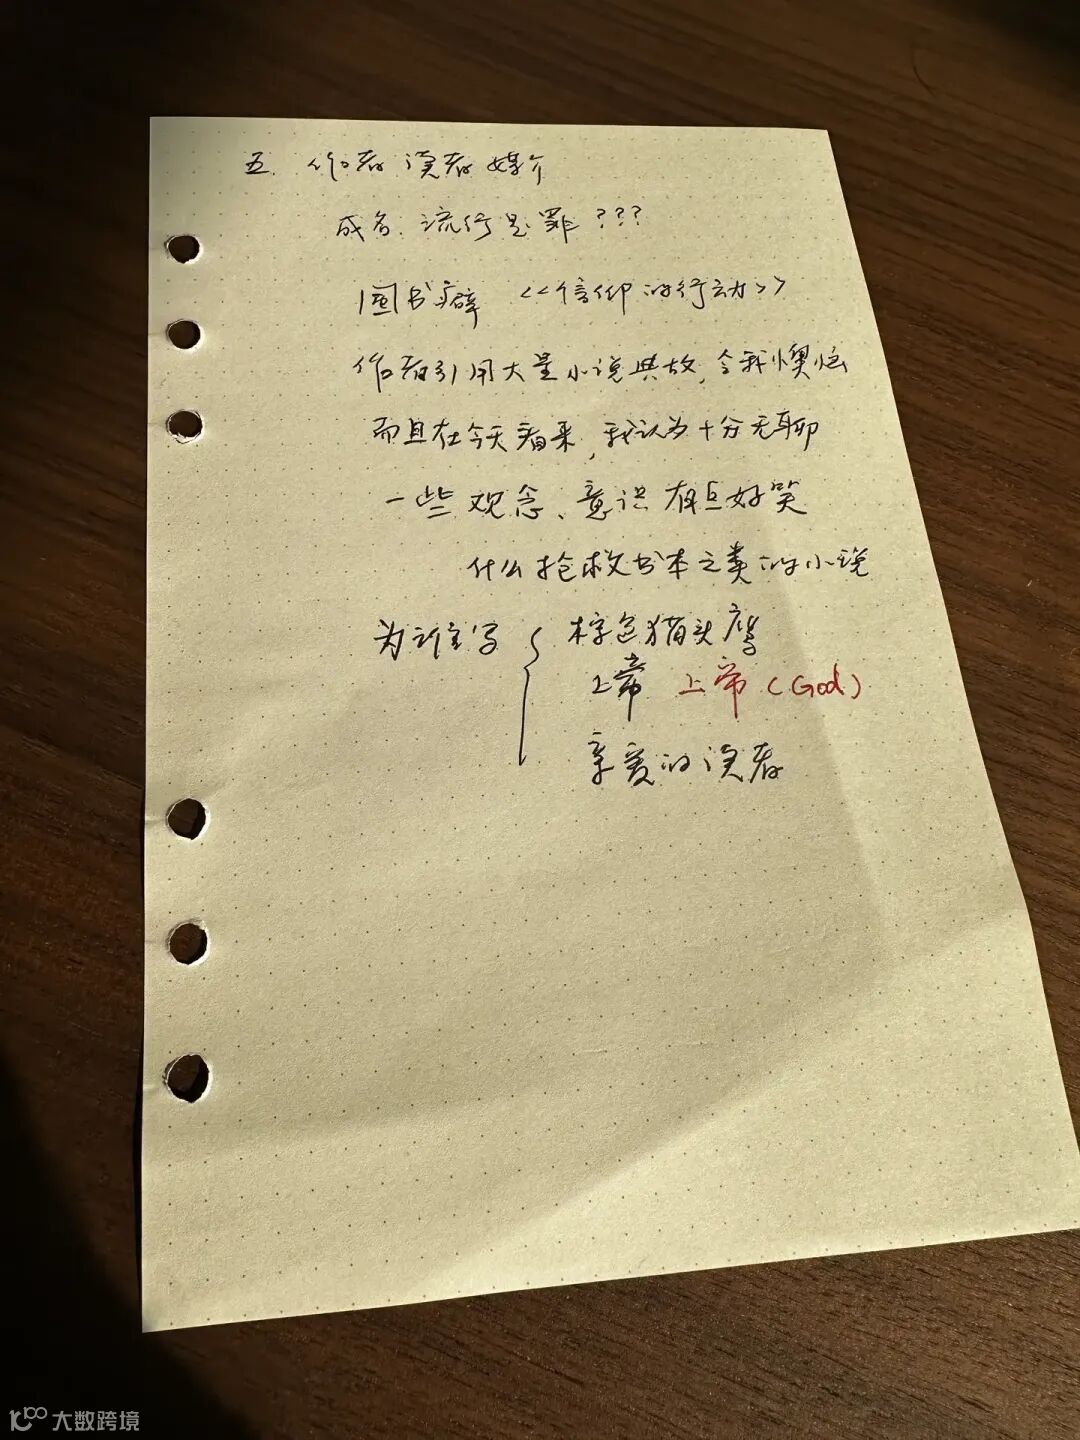 五. 作者 读者 媒介
成名. 流行是罪???
图书癖 《信仰的行动》
作者引用大量小说典故,令我懊恼
而且在今天看来,我认为十分无聊
一些观念、意识有点好笑
什么抢救书本之类的小说
为谁写 { 棕色猫头鹰
上帝 上帝(God)
亲爱的读者
大数跨境